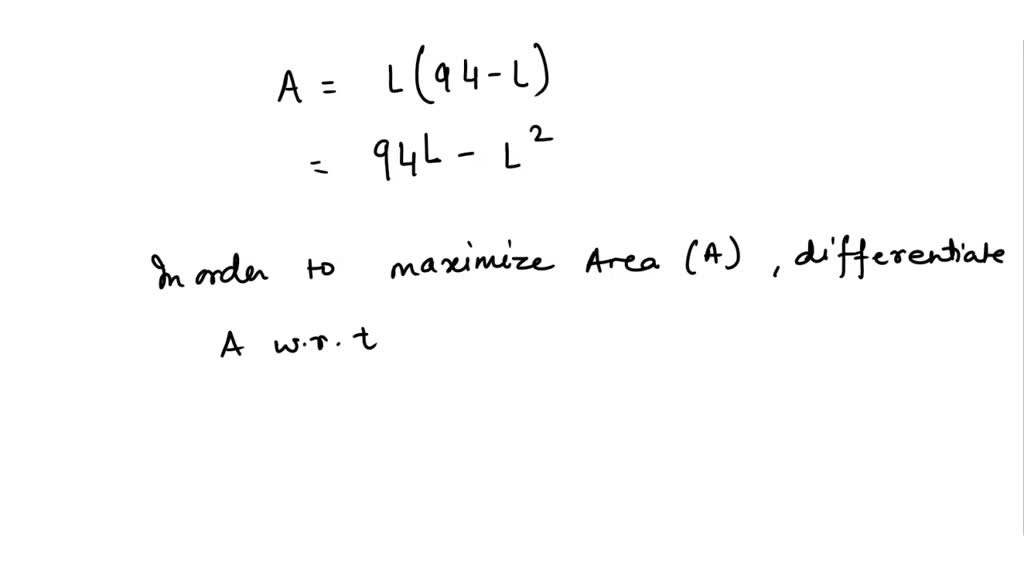 A = L(94-L)
= 94L - L²
In order to maximize Area (A), differentiate
A w.r.t